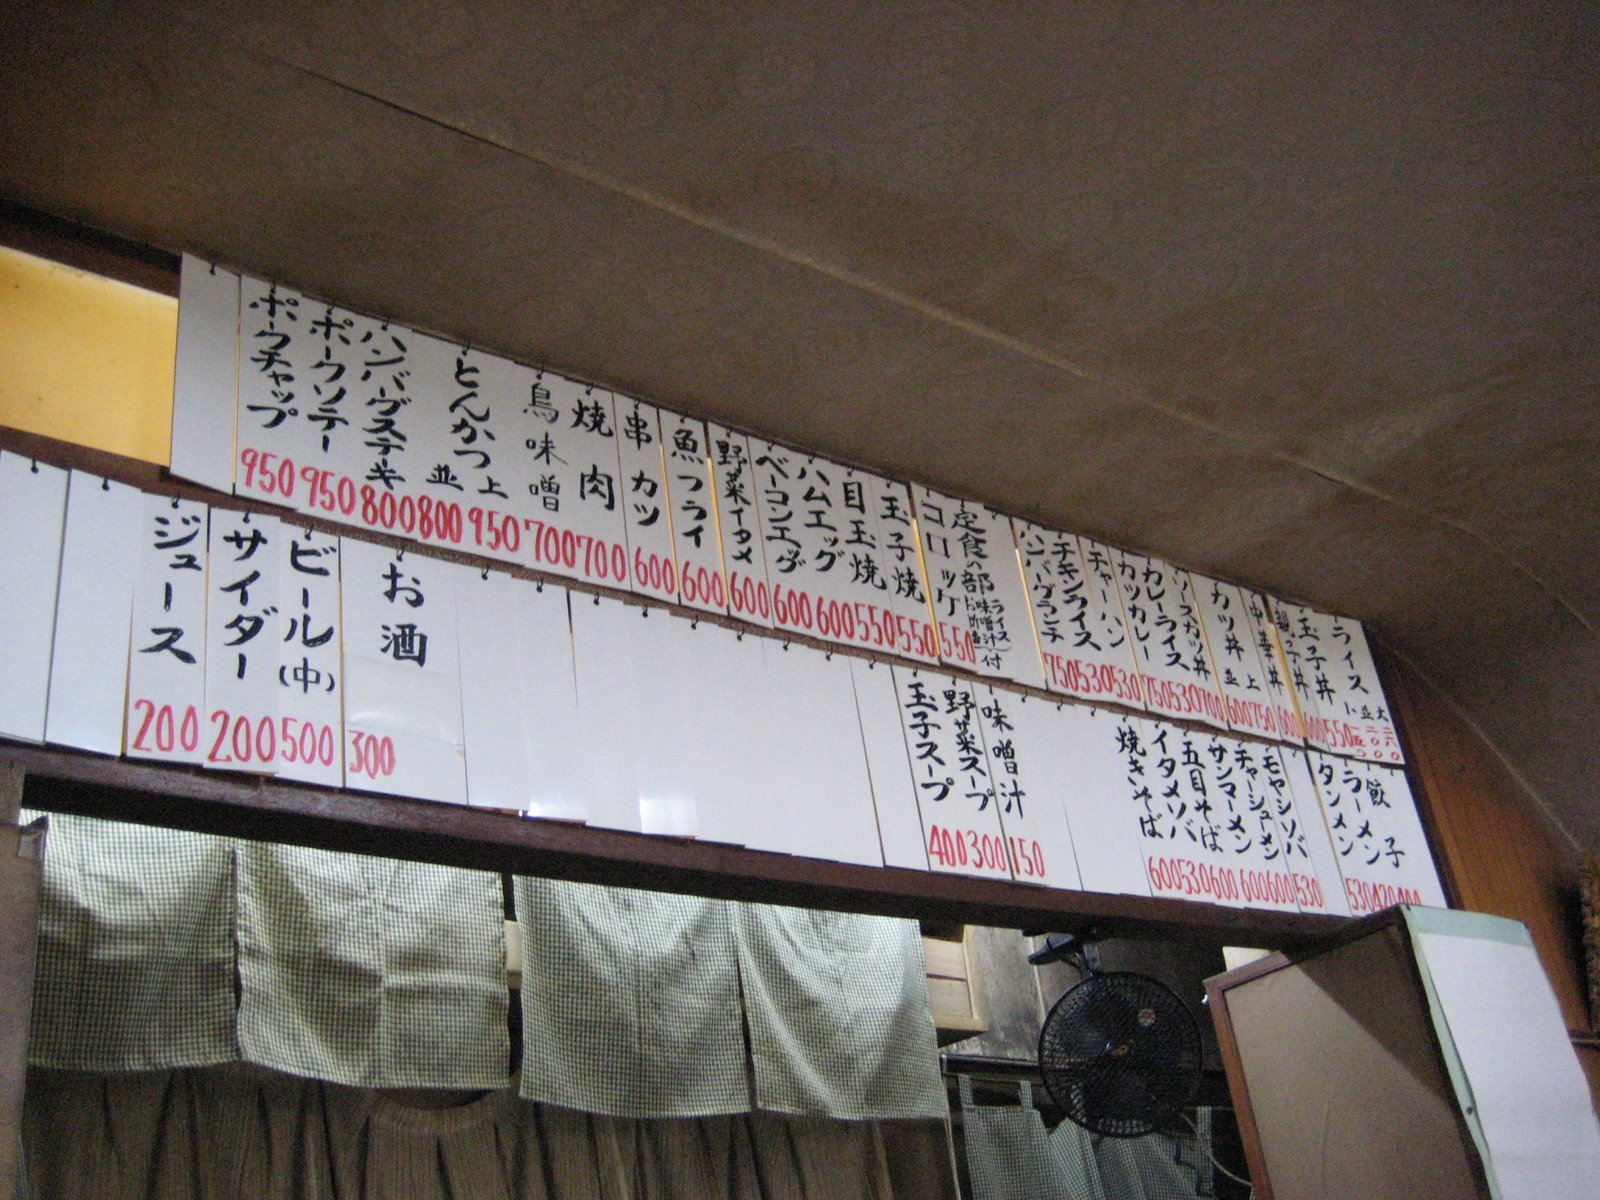 ライス 大 二六〇
並 二〇〇
小 一五〇
玉子丼 550
親子丼 600
中華丼 600
カツ丼 上 750
並 600
ソースカツ丼 700
カレーライス 530
カツカレー 750
チャーハン 530
チキンライス 530
ハンバーグランチ 750
定食の部 ライス 味噌汁 付
コロッケ 550
玉子焼 550
目玉焼 550
ハムエッグ 600
ベーコンエッグ 600
野菜イタメ 600
魚フライ 600
串カツ 600
焼肉 700
鳥味噌 700
とんかつ 上 950
並 800
ハンバーグステーキ 800
ポークソテー 950
ポークチャップ 950
餃子 400
ラーメン 420
タンメン 530
モヤシソバ 530
チャーシューメン 600
サンマーメン 600
五目そば 600
イタメソバ 530
焼きそば 600
味噌汁 150
野菜スープ 300
玉子スープ 400
お酒 300
ビール(中) 500
サイダー 200
ジュース 200